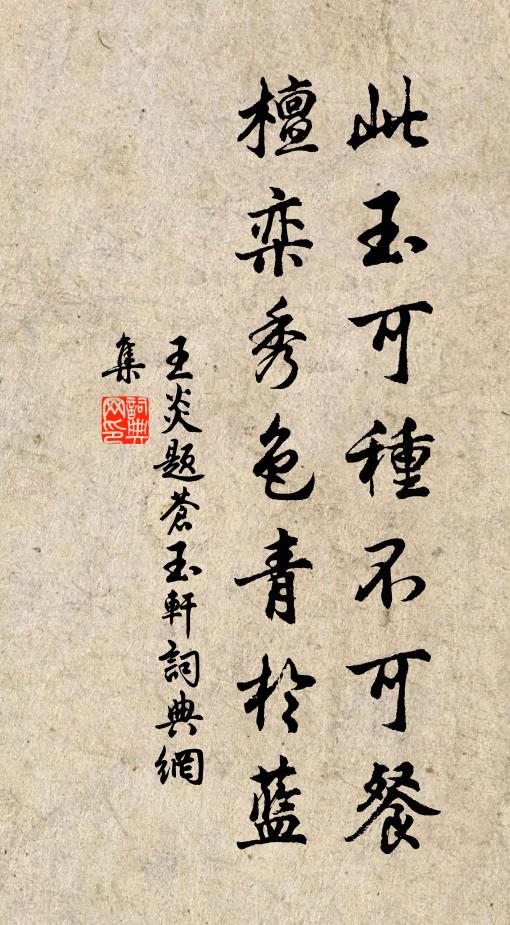 此玉可種不可餐
檀欒秀色青於藍
王炎題蒼玉軒詞典網
集
詞典
网印